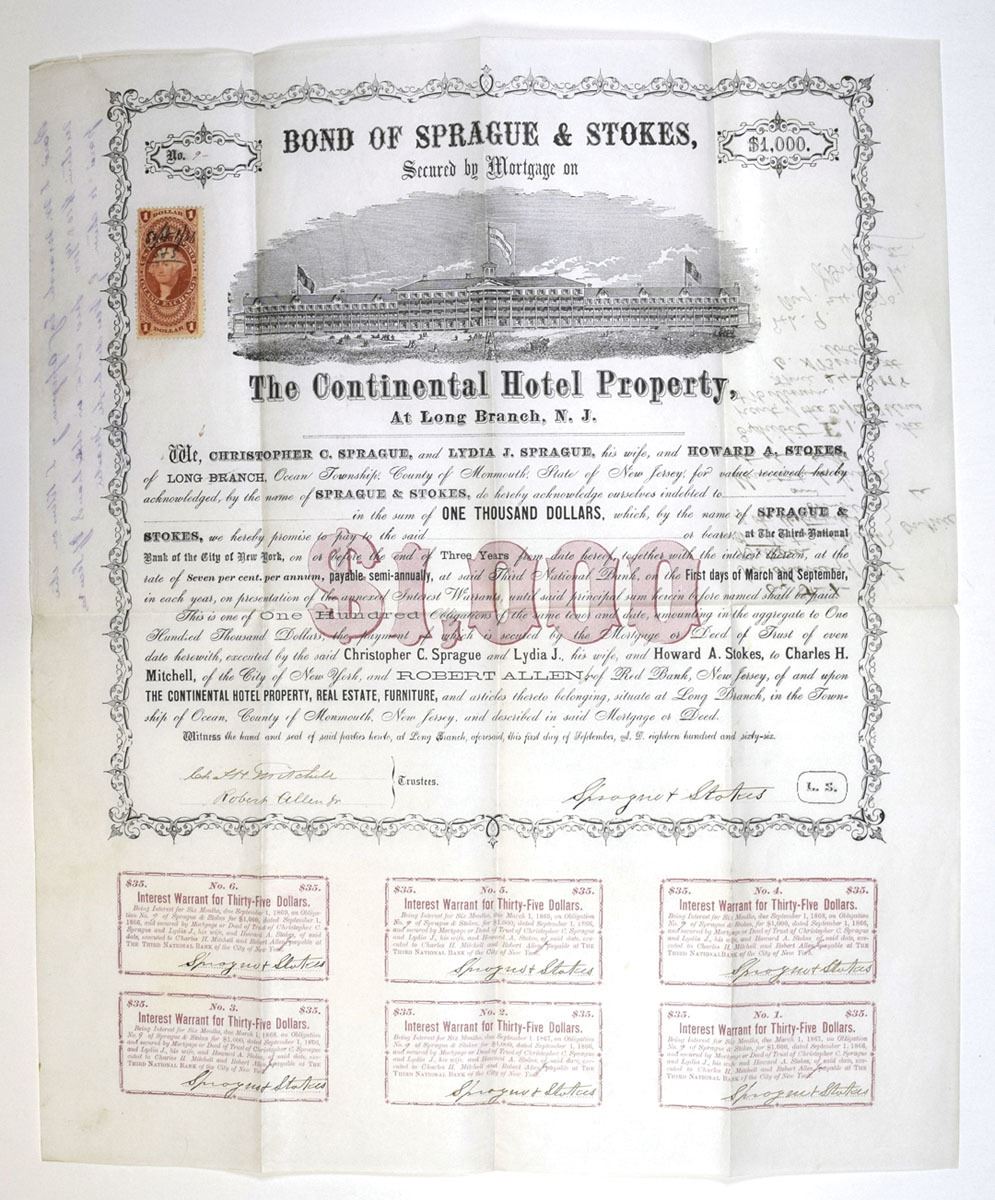 BOND OF SPRAGUE & STOKES,
No. 9
$1,000.
Secured by Mortgage on
1 DOLLAR 1
1 DOLLAR 1
The Continental Hotel Property,
At Long Branch, N. J.
We, CHRISTOPHER C. SPRAGUE, and LYDIA J. SPRAGUE, his wife, and HOWARD A. STOKES,
of LONG BRANCH, Ocean Township, County of Monmouth, State of New Jersey, for value received, hereby
acknowledged, by the name of SPRAGUE & STOKES, do hereby acknowledge ourselves indebted to
in the sum of ONE THOUSAND DOLLARS, which, by the name of SPRAGUE &
STOKES, we hereby promise to pay to the said or bearer, at The Third National
Bank of the City of New York, on or before the end of Three Years from date hereof, together with the interest thereon, at the
rate of Seven per cent. per annum, payable semi-annually, at said Third National Bank, on the First days of March and September,
in each year, on presentation of the annexed Interest Warrants, until said principal sum herein before named shall be paid.
$1,000
This is one of One Hundred Obligations of the same tenor and date, amounting in the aggregate to One
Hundred Thousand Dollars, the payment of which is secured by the Mortgage or Deed of Trust of even
date herewith, executed by the said Christopher C. Sprague and Lydia J., his wife, and Howard A. Stokes, to Charles H.
Mitchell, of the City of New York, and ROBERT ALLEN, of Red Bank, New Jersey, of and upon
THE CONTINENTAL HOTEL PROPERTY, REAL ESTATE, FURNITURE, and articles thereto belonging, situate at Long Branch, in the Town-
ship of Ocean, County of Monmouth, New Jersey, and described in said Mortgage or Deed.
Witness the hand and seal of said parties hereto, at Long Branch, aforesaid, this first day of September, A. D. eighteen hundred and sixty-six.
Chas H Mitchell
Robert Allen Jr
Trustees.
Sprague & Stokes
L. S.
$35. No. 6. $35.
Interest Warrant for Thirty-Five Dollars.
Being Interest for Six Months, due September 1, 1869, on Obliga-
tion No. 9 of Sprague & Stokes for $1,000, dated September 1,
1866, and secured by Mortgage or Deed of Trust of Christopher C.
Sprague and Lydia J., his wife, and Howard A. Stokes, of said
date, executed to Charles H. Mitchell and Robert Allen, payable at
THE THIRD NATIONAL BANK of the City of New York.
Sprague & Stokes
$35. No. 5. $35.
Interest Warrant for Thirty-Five Dollars.
Being Interest for Six Months, due March 1, 1869, on Obligation
No. 9 of Sprague & Stokes, for $1,000, dated September 1, 1866,
and secured by Mortgage or Deed of Trust of Christopher C. Sprague
and Lydia J., his wife, and Howard A. Stokes, of said date, exe-
cuted to Charles H. Mitchell and Robert Allen, payable at THE
THIRD NATIONAL BANK of the City of New York.
Sprague & Stokes
$35. No. 4. $35.
Interest Warrant for Thirty-Five Dollars.
Being Interest for Six Months, due September 1, 1868, on Obligation
No. 9 of Sprague & Stokes for $1,000, dated September 1, 1866,
and secured by Mortgage or Deed of Trust of Christopher C. Sprague
and Lydia J., his wife, and Howard A. Stokes, of said date, exe-
cuted to Charles H. Mitchell and Robert Allen, payable at THE
THIRD NATIONAL BANK of the City of New York.
Sprague & Stokes
$35. No. 3. $35.
Interest Warrant for Thirty-Five Dollars.
Being Interest for Six Months, due March 1, 1868, on Obligation
No. 9 of Sprague & Stokes for $1,000, dated September 1, 1866,
and secured by Mortgage or Deed of Trust of Christopher C. Sprague
and Lydia J., his wife, and Howard A. Stokes, of said date, exe-
cuted to Charles H. Mitchell and Robert Allen, payable at THE
THIRD NATIONAL BANK of the City of New York
Sprague & Stokes
$35. No. 2. $35.
Interest Warrant for Thirty-Five Dollars.
Being Interest for Six Months, due September 1, 1867, on Obligation
No. 9 of Sprague & Stokes for $1,000, dated September 1, 1866,
and secured by Mortgage or Deed of Trust of Christopher C. Sprague
and Lydia J., his wife, and Howard A. Stokes, of said date, exe-
cuted to Charles H. Mitchell and Robert Allen, payable at THE
THIRD NATIONAL BANK of the City of New York.
Sprague & Stokes
$35. No. 1. $35.
Interest Warrant for Thirty-Five Dollars.
Being Interest for Six Months, due March 1, 1867, on Obligation
No. 9 of Sprague & Stokes, for $1,000, dated September 1, 1866,
and secured by Mortgage or Deed of Trust of Christopher C. Sprague
and Lydia J., his wife, and Howard A. Stokes, of said date, exe-
cuted to Charles H. Mitchell and Robert Allen, payable at THE
THIRD NATIONAL BANK of the City of New York.
Sprague & Stokes